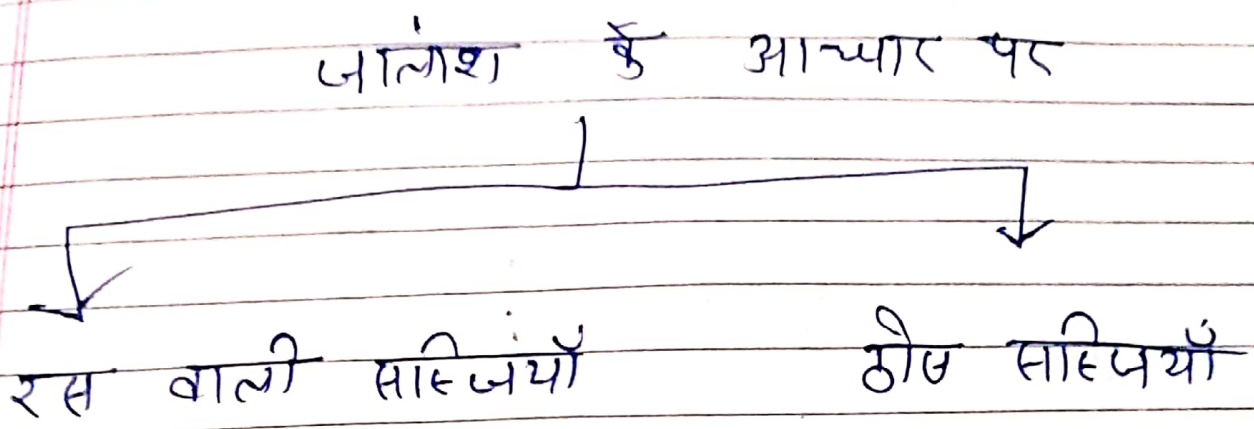 जालांश के आधार पर
रस वाली सब्जियाँ ठोस सब्जियाँ